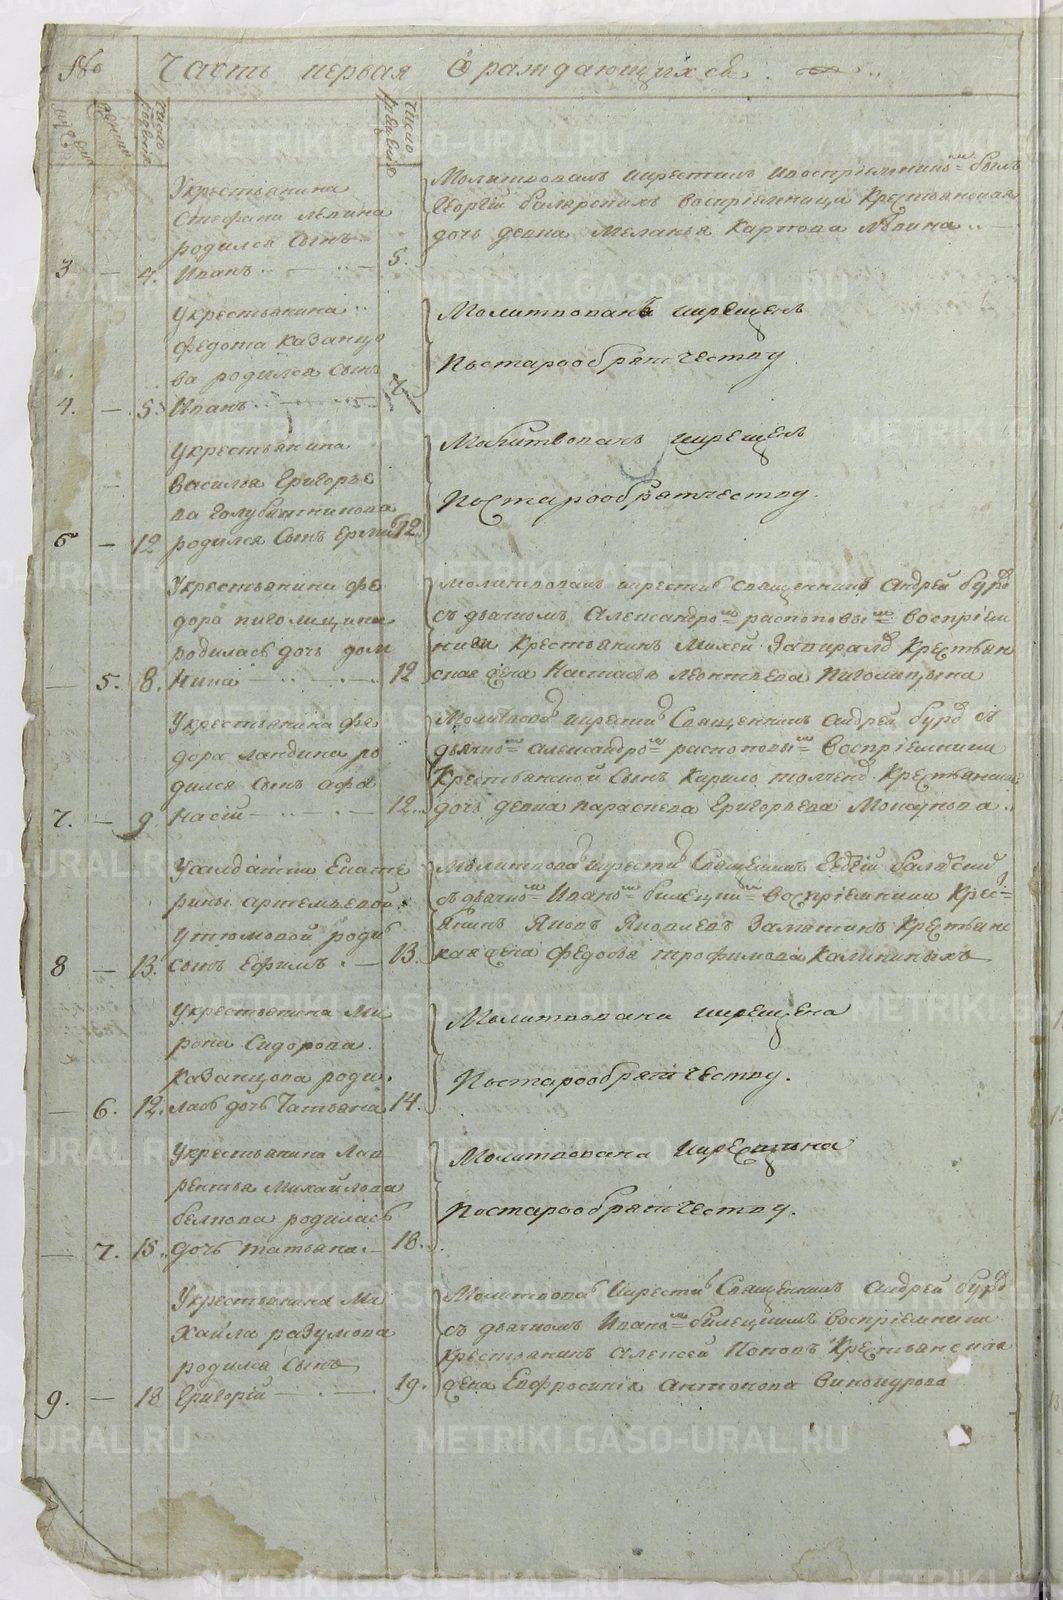 № Часть первая О раждающихся
число рождения
число крещения
Укрестьянина
Стефана Лепина
родился сынъ
3 — 4. Иванъ 5.
Молитвовалъ икрестилъ ивоспріемникъ былъ
Георгій воспріемница Крестьянская
дочь девка Меланья Карпова Лепина
Укрестьянина
Федота Казанцо
ва родился сынъ
4. — 5. Иванъ 7
Молитвованъ икрещенъ
Постарообрятчеству
Укрестьянина
Василья Григорье
ва Голубятникова
5 — 12 родился сынъ 12
Молитвованъ икрещенъ
Постарообрятчеству.
Укрестьянина фе
дора пиголицина
родилась дочь дом
— 5. 8. ника 12
Молитвовалъ икрестилъ священникъ Андрей
съ дьячкомъ Александромъ распоповымъ воспріем
ники Крестьянинъ Крестьян
ская жена Настасья леонтьева Пиголицына
Укрестьянина фе
дора ландина ро
дился сынъ афа
7. — 9 насій 12
Молитвовалъ икрестилъ Священникъ андрей съ
дьячкомъ александромъ распоповымъ воспріемники
Крестьянской сынъ Кирило Крестьянская
дочь девка параскева Григорьева
Усалдатки Екате
рины артемьевой
Утюмовой родился
8 — 13. сынъ Ефимъ 13.
Молитвовалъ икрестилъ Священникъ
съ дьячкомъ Иваномъ воспріемники Крес
янинъ Яковъ Яковлевъ Замятинъ Крестьянс
кая жена Федосья трофимова Калининыхъ
Укрестьянина Ми
рона Сидорова
Казанцова роди
— 6. 12. лась дочь Татьяна 14.
Молитвована икрещена
Постарообрятчеству.
Укрестьянина Лав
рентья Михайлова
белкова родилась
— 7. 15. дочь татьяна 18.
Молитвована икрещена
Постарообрятчеству.
Укрестьянина Ми
хайла разумова
родился сынъ
9. — 18 Григорій 19.
Молитвовалъ икрестилъ Священникъ андрей
съ дьячкомъ Иваномъ воспріемники
Крестьянинъ Алексей Поповъ Крестьянская
жена Евфросинія антонова винокурова
METRIKI.GASO-URAL.RU